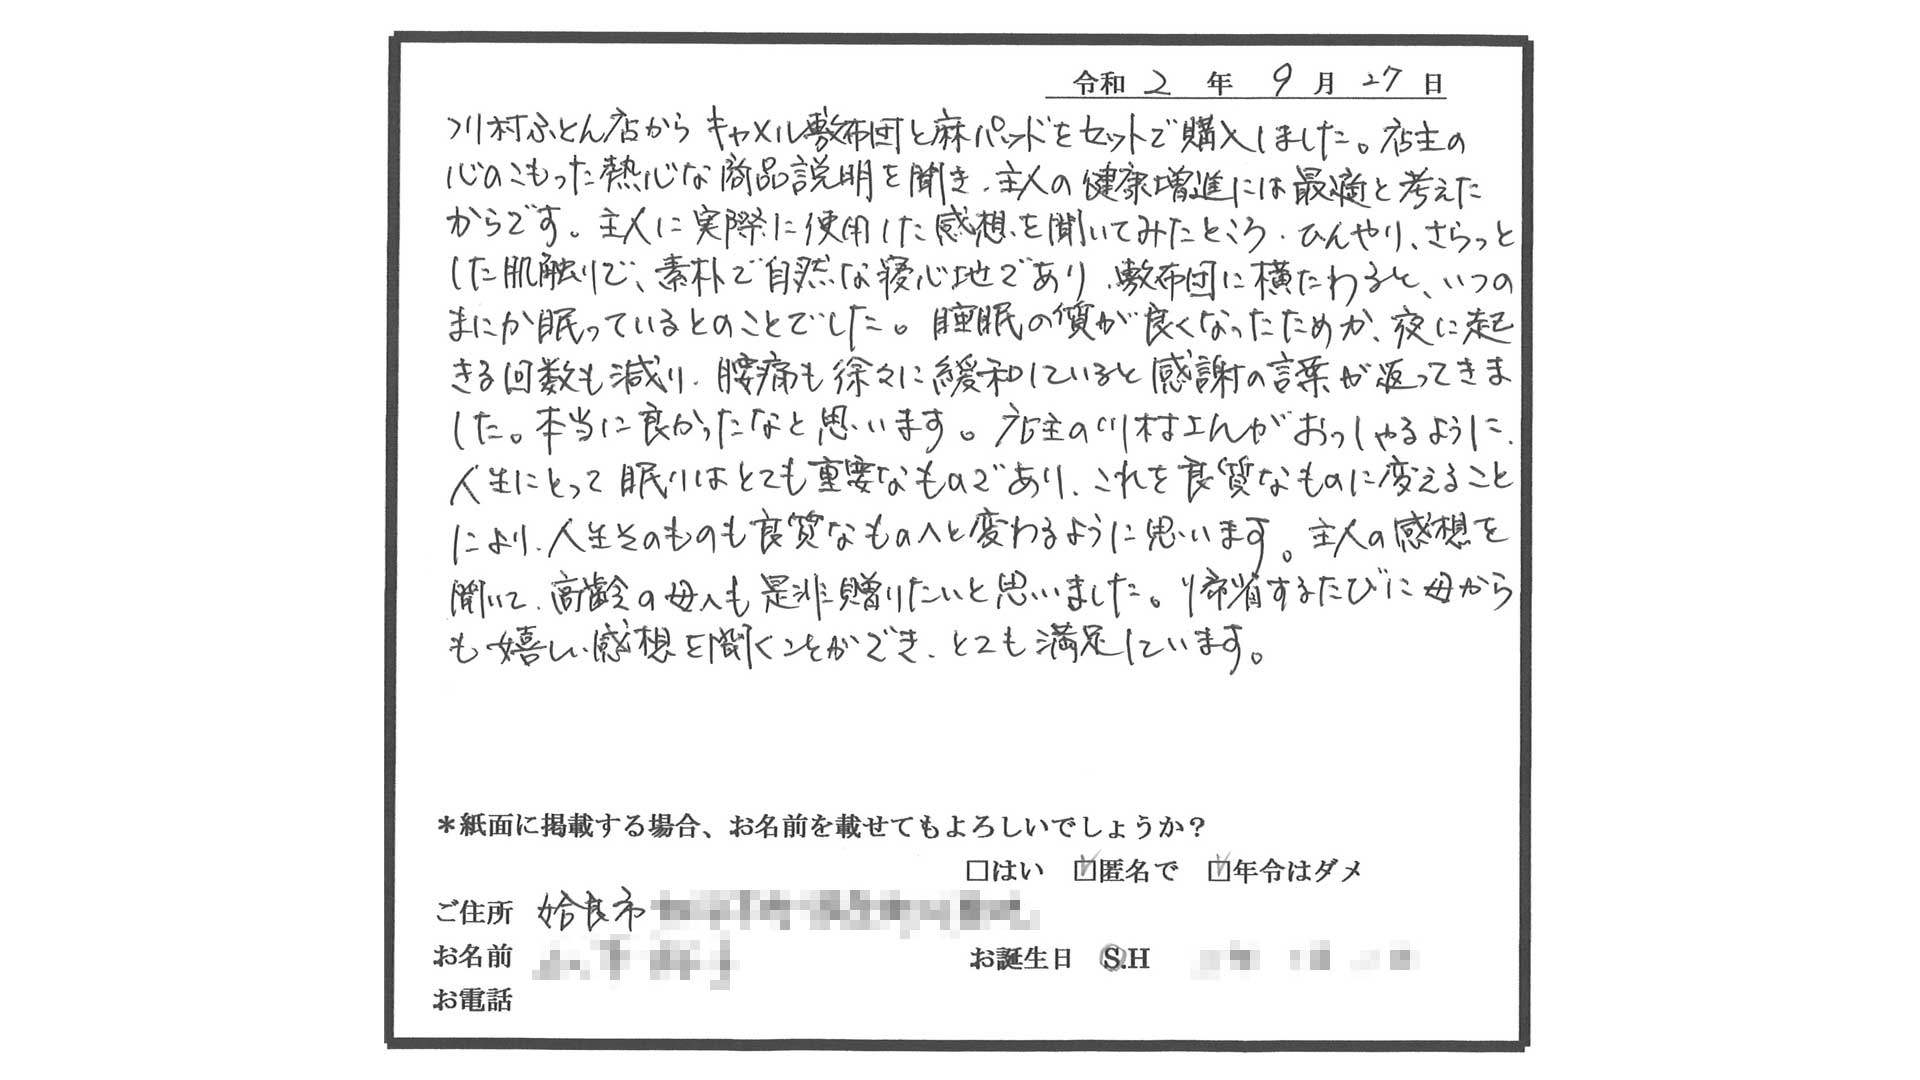 令和2年9月27日
川村ふとん店からキャメル敷布団と麻パッドをセットで購入しました。店主の
心のこもった熱心な商品説明を聞き、主人の健康増進には最適と考えた
からです。主人に実際に使用した感想を聞いてみたところ、ひんやり、さらっと
した肌触りで、素朴で自然な寝心地であり、敷布団に横たわると、いつの
まにか眠っているとのことでした。睡眠の質が良くなったためか、夜に起
きる回数も減り、腰痛も徐々に緩和していると感謝の言葉が返ってきま
した。本当に良かったなと思います。店主の川村さんがおっしゃるように、
人生にとって眠りはとても重要なものであり、これを良質なものに変えること
により、人生そのものも良質なものへと変わるように思います。主人の感想を
聞いて、高齢の母へも是非贈りたいと思いました。帰省するたびに母から
も嬉しい感想を聞くことができ、とても満足しています。
＊紙面に掲載する場合、お名前を載せてもよろしいでしょうか？
□はい ☑匿名で ☑年令はダメ
ご住所 姶良市
お名前 お誕生日 S.H
お電話